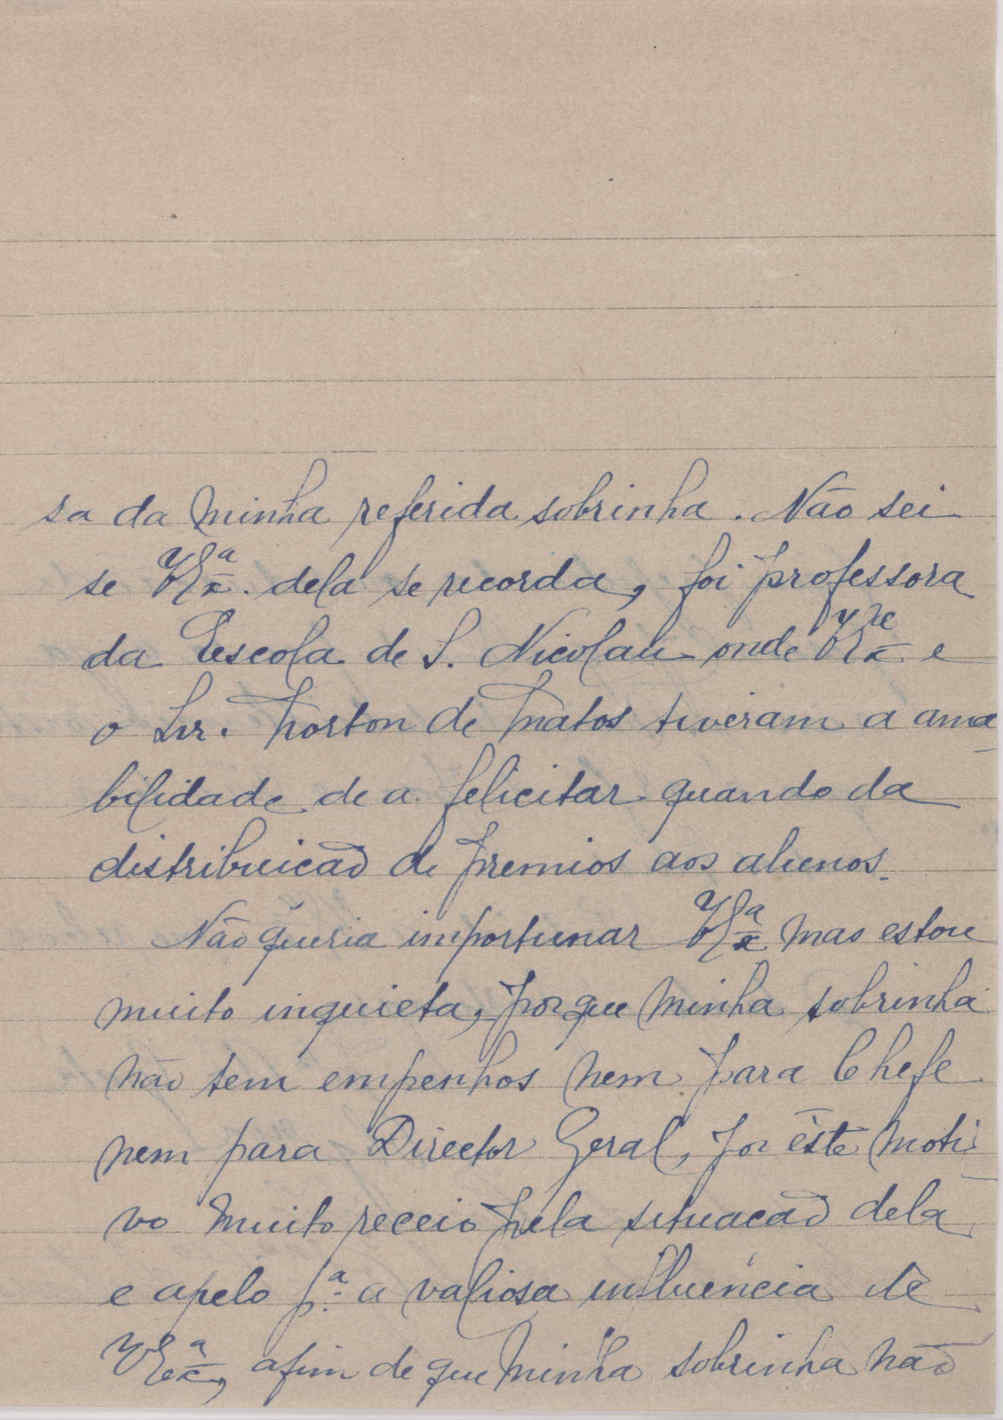 sa da minha referida sobrinha. Não sei
se V. Exª. dela se recorda, foi professora
da Escola de S. Nicolau onde V. Ex e
o Snr. Norton de Matos tiveram a ama
bilidade de a felicitar quando da
distribuicão de premios aos alunos.
Não queria importunar V. Exª mas estou
muito inquieta, porque minha sobrinha
não tem empenhos nem para Chefe
nem para Director Geral, por êste moti
vo muito receio pela situacão dela
e apelo pª a valiosa influência de
V. Exª, afim de que minha sobrinha não